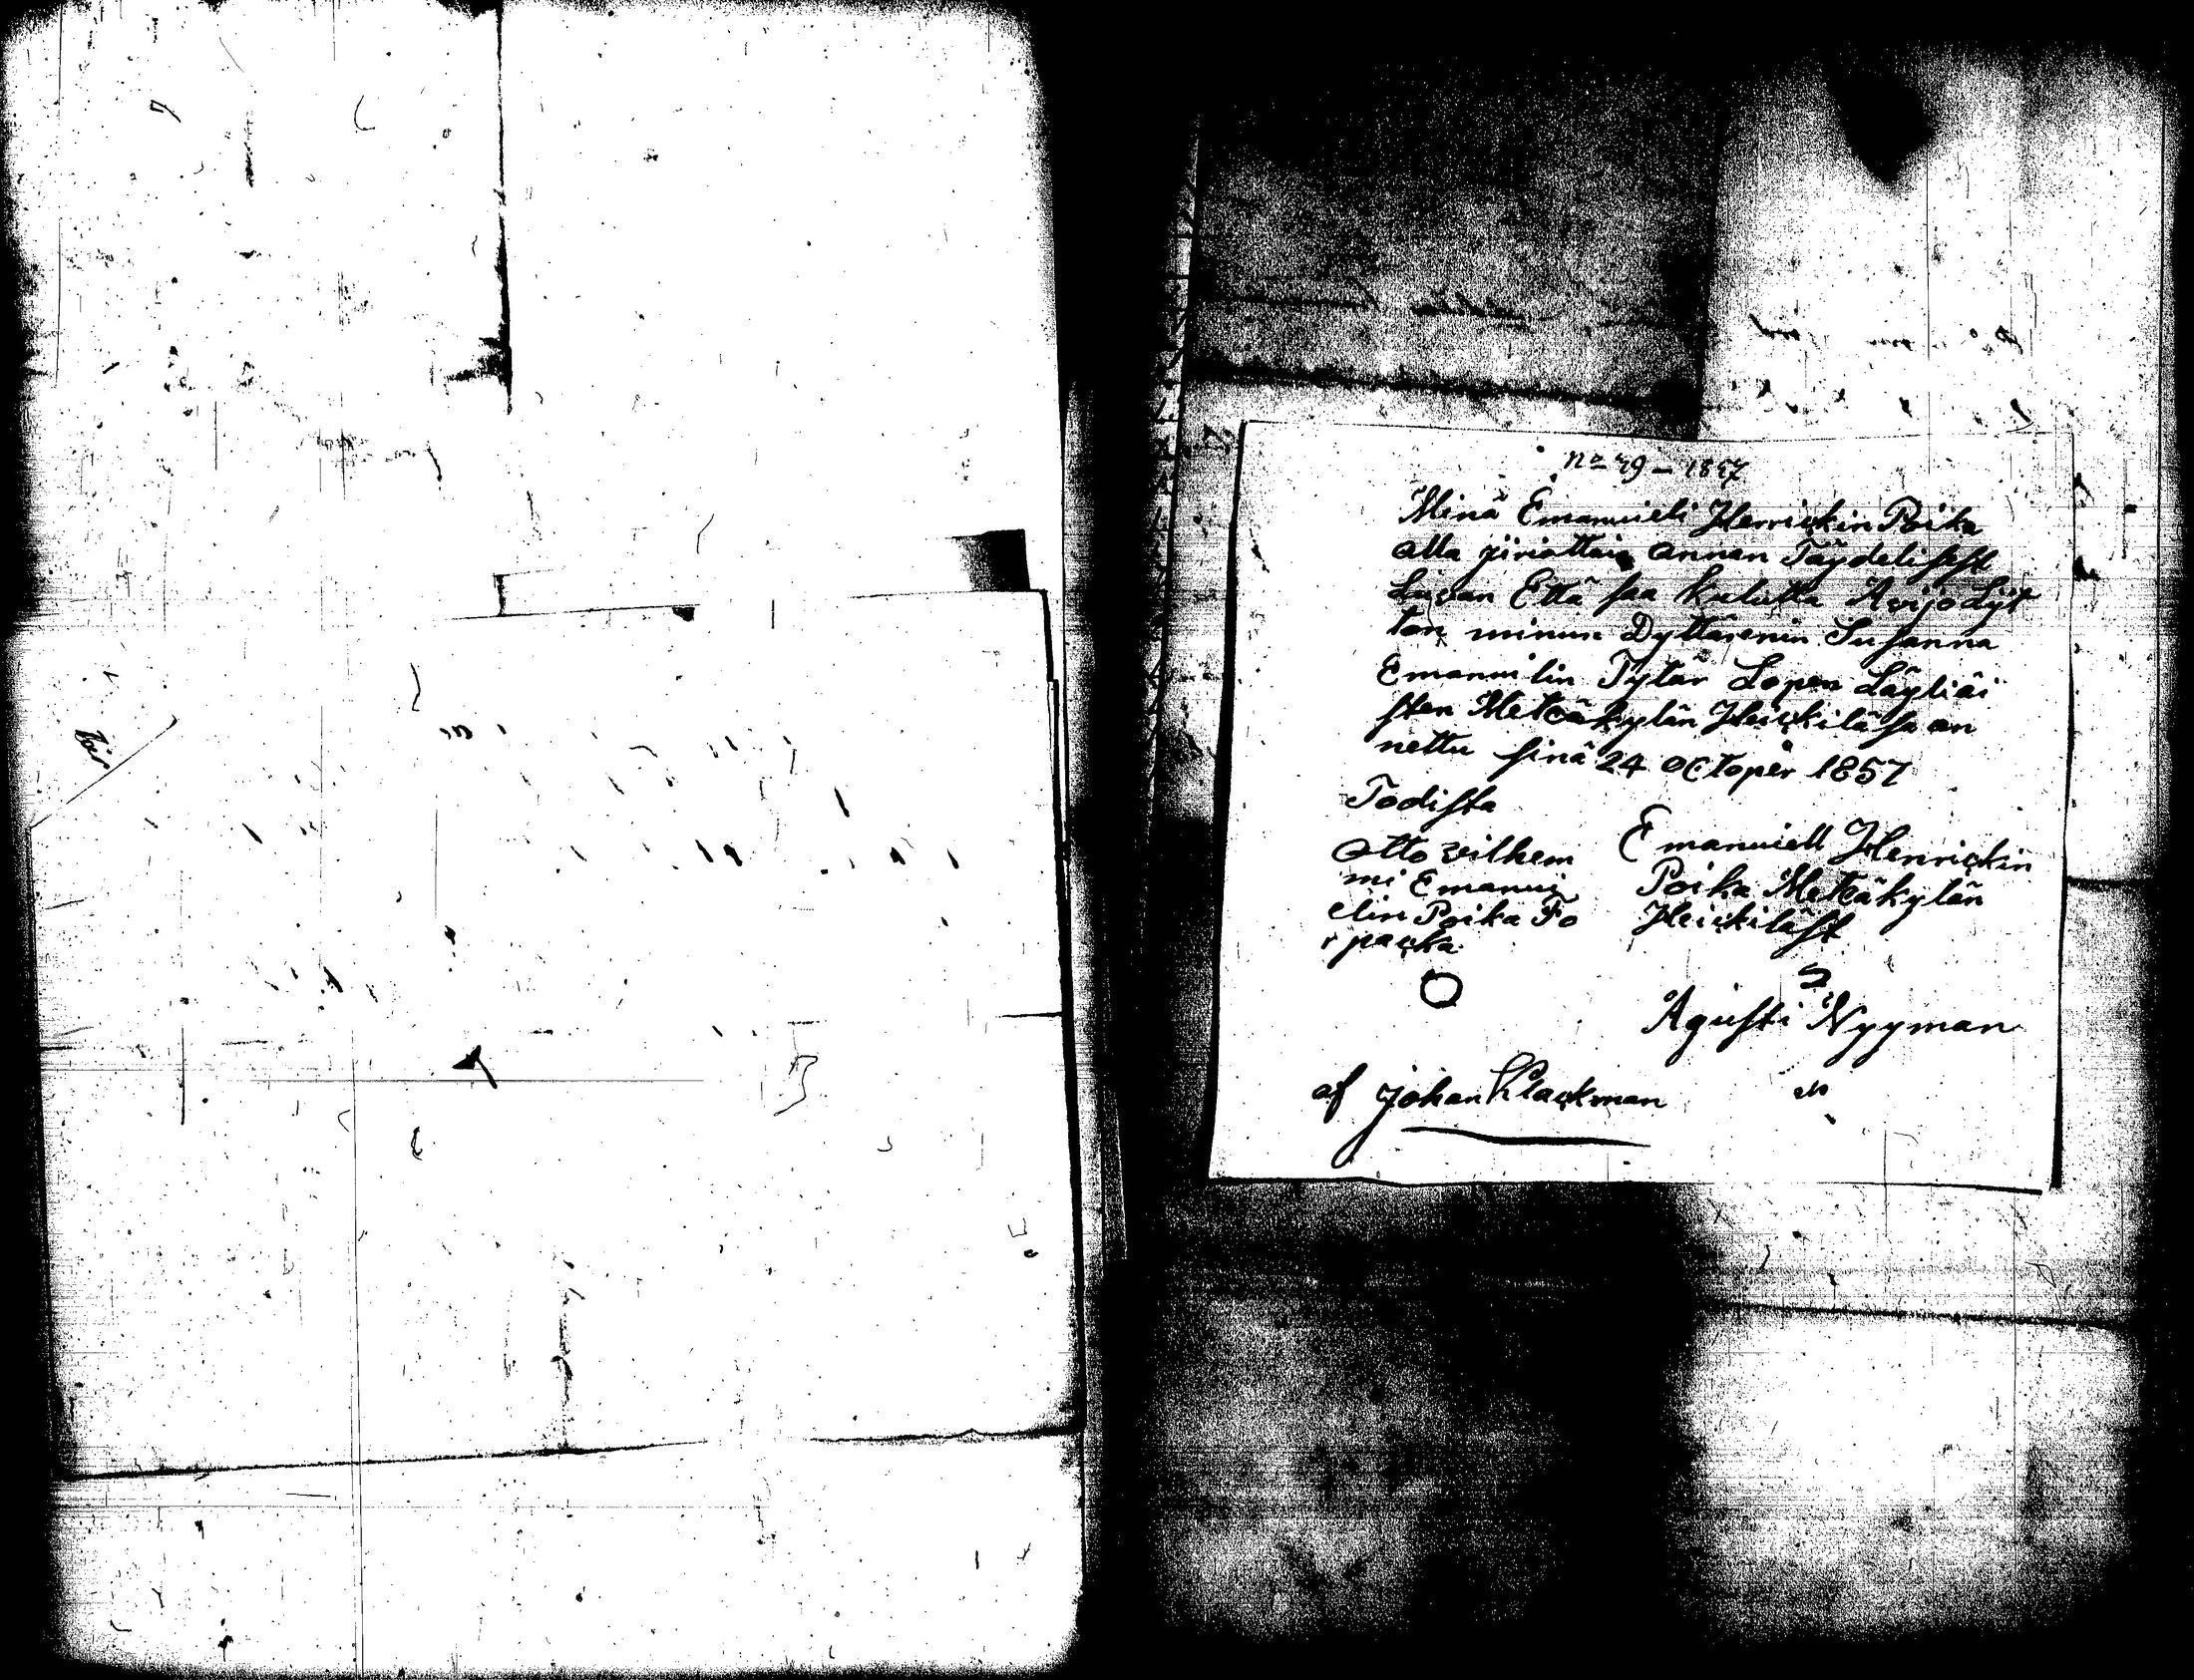 No 79 – 1857
Minä Emanuieli Henrickin Poika
alla kiriottain annan Täydelisest
Luvan Että saa kulutta Avijo Lyt
ton minun Dyttärenin Susanna
Emanuilin Tytär Lopen Läyliäi
sten Metcäkylän Heickiläsä an
nettu sinä 24 October 1857
Todista
Otto vilhem
mi Emanui
elin Poika Fo
rpacka
Emanuiell Henrickin
Poika Metcäkylän
Heickiläst
Agusti Nyyman
af Johan Klackman